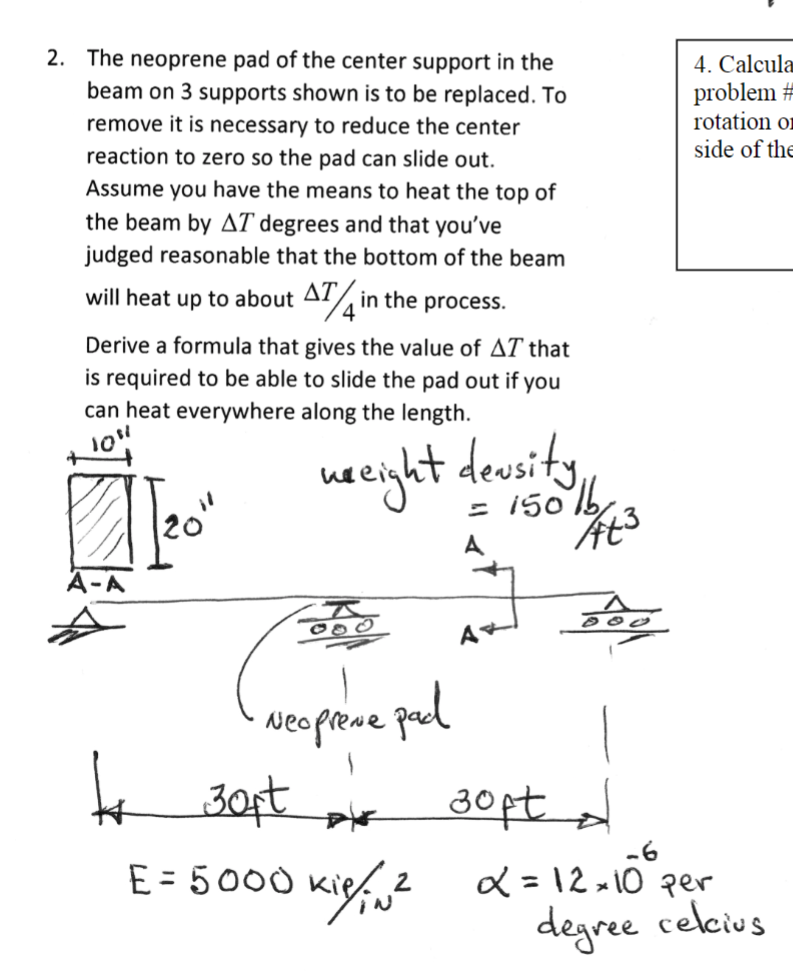 2. The neoprene pad of the center support in the
beam on 3 supports shown is to be replaced. To
remove it is necessary to reduce the center
reaction to zero so the pad can slide out.
Assume you have the means to heat the top of
the beam by ΔT degrees and that you've
judged reasonable that the bottom of the beam
will heat up to about ΔT/4 in the process.
Derive a formula that gives the value of ΔT that
is required to be able to slide the pad out if you
can heat everywhere along the length.
4. Calcula
problem #
rotation o
side of the
10"
20"
A-A
weight density
= 150 lb/ft3
A
A
Neoprene pad
30ft
30ft
E = 5000 kip/iN2
α = 12×10-6 per
degree celcius